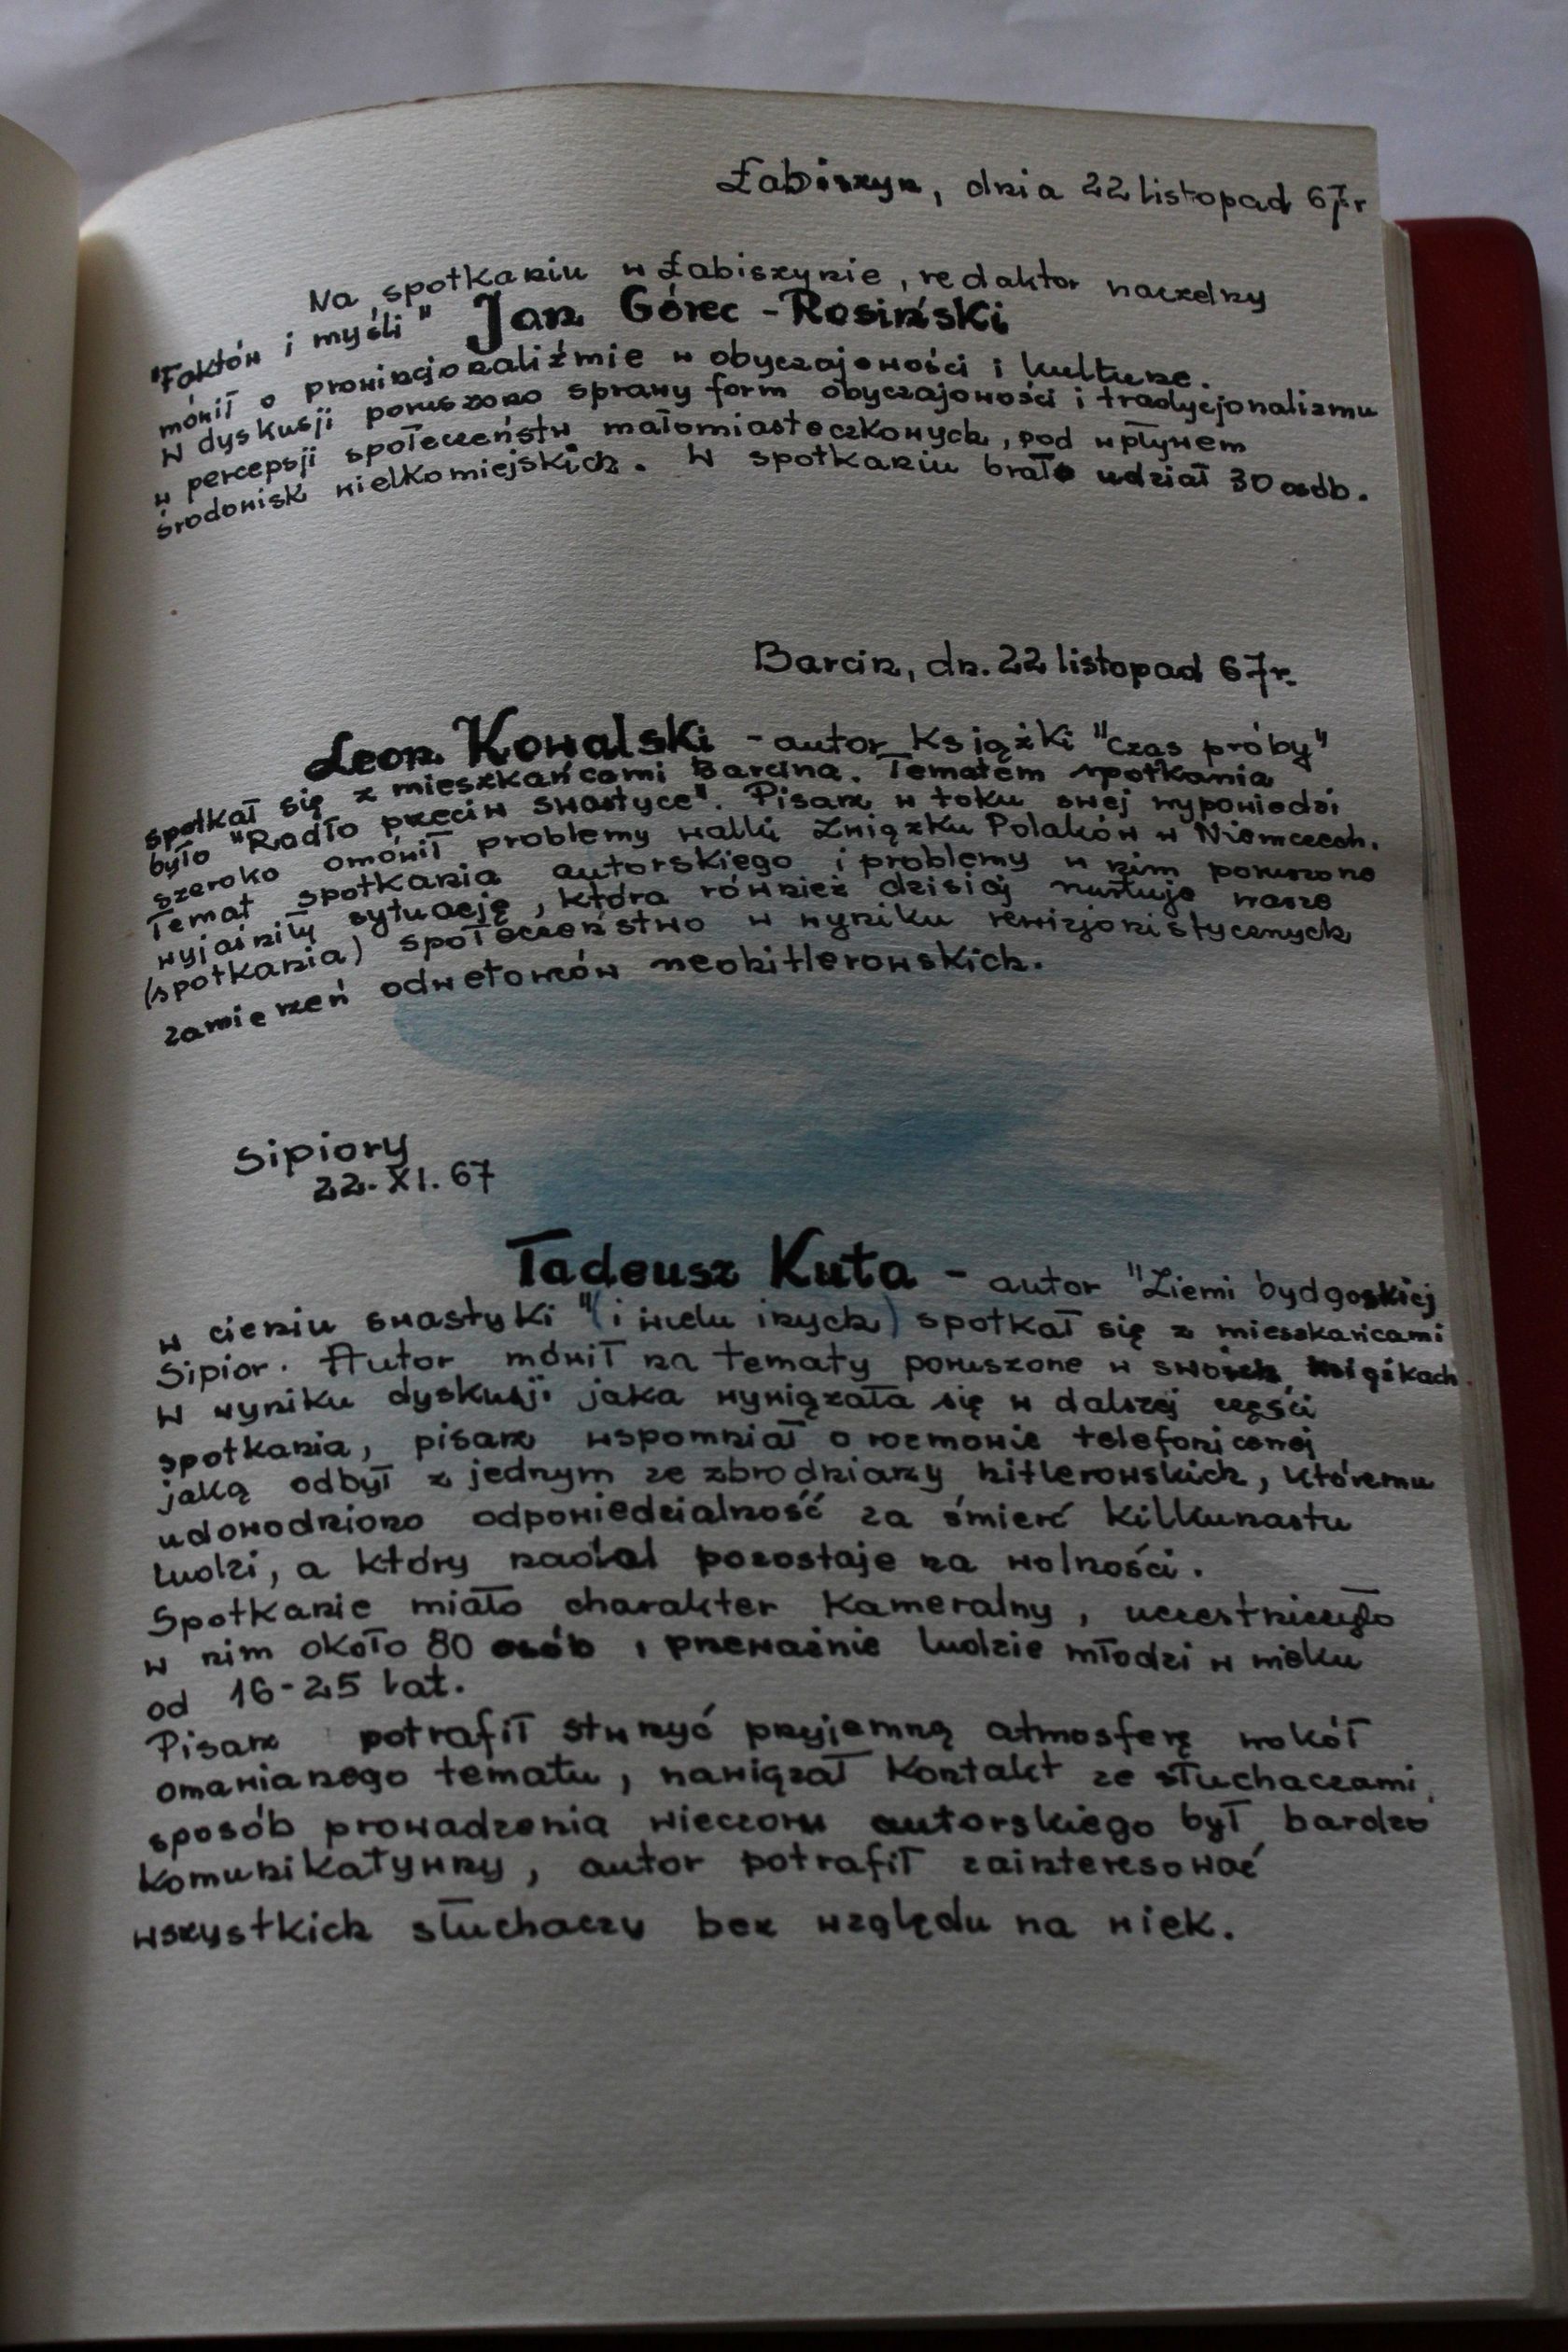 Łabiszyn, dnia 22 listopad 67r
Na spotkaniu w Łabiszynie, redaktor naczelny
"Faktów i myśli" Jan Górec-Rosiński
mówił o prowincjonaliźmie w obyczajowości i kulturze.
W dyskusji poruszono sprawy form obyczajowości i tradycjonalizmu
w percepsji społeczeństw małomiasteczkowych, pod wpływem
środowisk wielkomiejskich. W spotkaniu brało udział 30 osób.
Barcin, dn. 22 listopad 67r.
Leon Kowalski - autor książki "czas próby"
spotkał się z mieszkańcami Barcina. Tematem spotkania
było "Rodło przeciw swastyce". Pisarz w toku swej wypowiedzi
szeroko omówił problemy walki Związku Polaków w Niemczech.
Temat spotkania autorskiego i problemy w nim poruszone
wyjaśniły sytuację, która również dzisiaj nurtuje nasze
(spotkania) społeczeństwo w wyniku rewizjonistycznych
zamierzeń odwetowców neohitlerowskich.
Sipiory
22. XI. 67
Tadeusz Kuta - autor "Ziemi bydgoskiej
w cieniu swastyki" (i wielu innych) spotkał się z mieszkańcami
Sipior. Autor mówił na tematy poruszone w swoich książkach.
W wyniku dyskusji jaka wywiązała się w dalszej części
spotkania, pisarz wspomniał o rozmowie telefonicznej
jaką odbył z jednym ze zbrodniarzy hitlerowskich, któremu
udowodniono odpowiedzialność za śmierć kilkunastu
ludzi, a który nadal pozostaje na wolności.
Spotkanie miało charakter kameralny, uczestniczyło
w nim około 80 osób, przeważnie ludzie młodzi w wieku
od 16-25 lat.
Pisarz potrafił stworzyć przyjemną atmosferę wokół
omawianego tematu, nawiązał kontakt ze słuchaczami,
sposób prowadzenia wieczoru autorskiego był bardzo
komunikatywny, autor potrafił zainteresować
wszystkich słuchaczy bez względu na wiek.